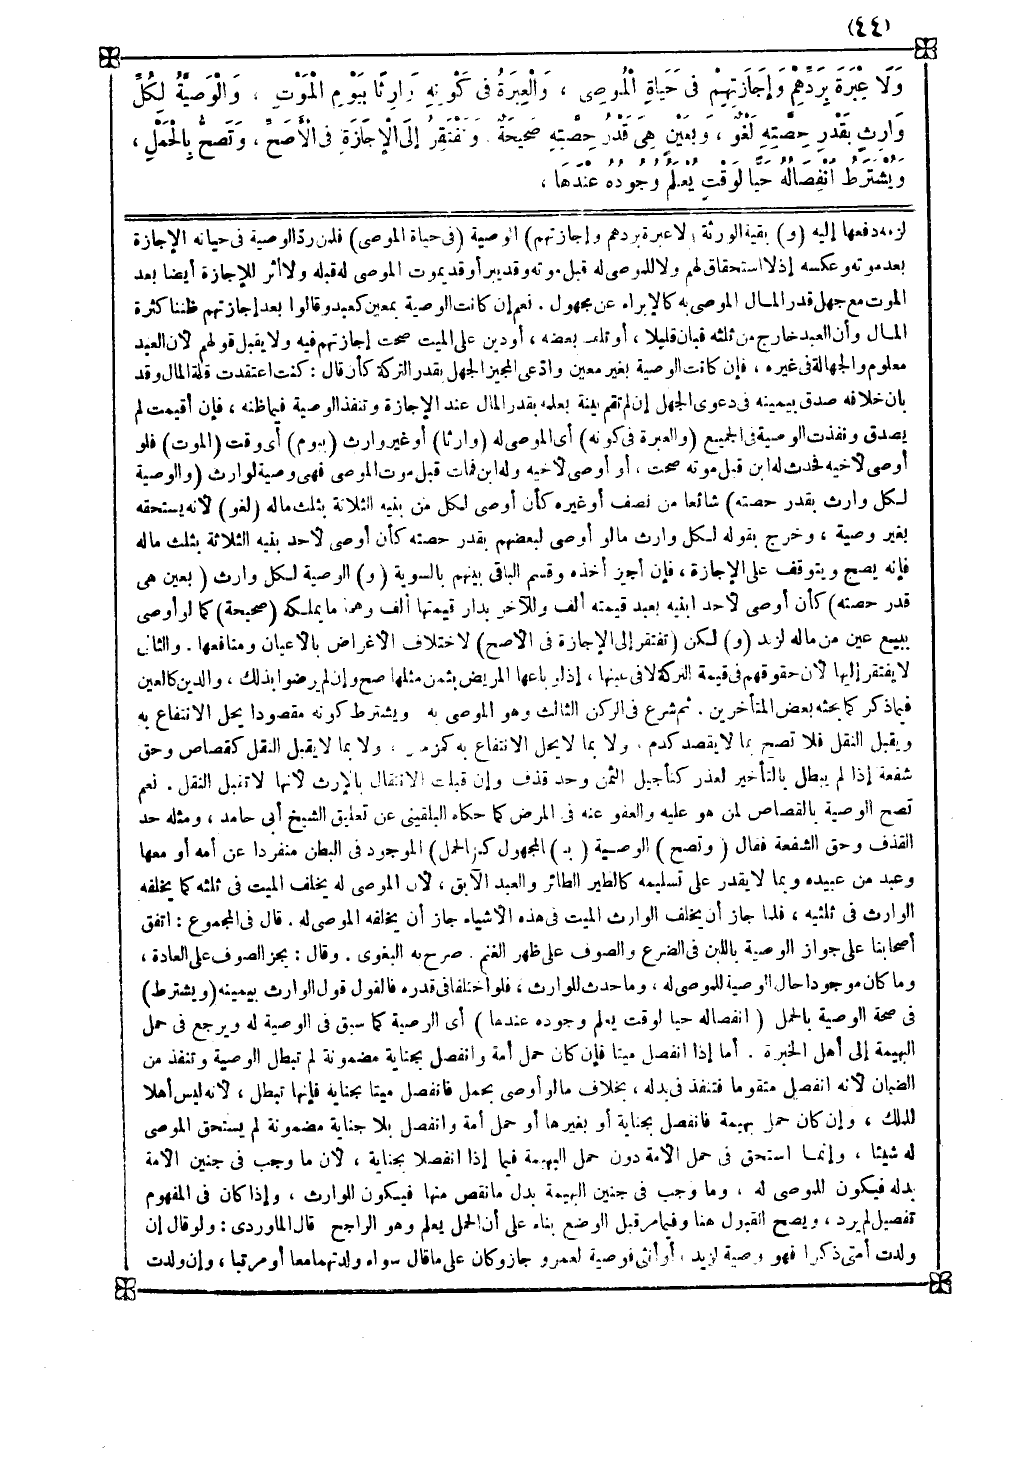 (٤٤)
وَلَا عِبْرَةَ بِرَدِّهِمْ وَإِجَازَتِهِمْ فِى حَيَاةِ الْمُوصِى ، وَالْعِبَرَةُ فِى كَوْنِهِ وَارِثًا بِيَوْمِ الْمَوْتِ ، وَالْوَصِيَّةُ لِكُلِّ
وَارِثٍ بِقَدْرِ حِصَّتِهِ لَغْوٌ ، وَبِعَيْنٍ هِىَ قَدْرُ حِصَّتِهِ صَحِيحَةٌ وَتَفْتَقِرُ إِلَى الْإِجَازَةِ فِى الْأَصَحِّ ، وَتَصِحُّ بِالْحَمْلِ ،
وَيُشْتَرَطُ انْفِصَالُهُ حَيًّا لِوَقْتٍ يُعْلَمُ وُجُودُهُ عِنْدَهَا ،
لزمه دفعها إليه (و) بقية الورثة (لا عبرة بردهم وإجازتهم) الوصية (فى حياة الموصى) فلمن ردّ الوصية فى حياته الإجازة
بعد موته وعكسه إذ لا استحقاق لهم ولا للموصى له قبل موته وقد يبرأ وقد يموت الموصى له قبله ولا أثر للإجازة أيضا بعد
الموت مع جهل قدر المال الموصى به كالإبراء عن مجهول . نعم إن كانت الوصية بمعين كعبد وقالوا بعد إجازتهم ظننا كثرة
المال وأن العبد خارج من ثلثه فبان قليلا ، أو تلف بعضه ، أو دين على الميت صحت إجازتهم فيه ولا يقبل قولهم لأن العبد
معلوم والجهالة فى غيره ، فإن كانت الوصية بغير معين وادّعى المجيز الجهل بقدر التركة كأن قال : كنت اعتقدت قلة المال وقد
بان خلافه صدق بيمينه فى دعوى الجهل إن لم تقم بينة بعلمه بقدر المال عند الإجازة وتنفذ الوصية فيما ظنه ، فإن أقيمت لم
يصدق ونفذت الوصية فى الجميع (والعبرة فى كونه) أى الموصى له (وارثا) أو غير وارث (بيوم) أى وقت (الموت) فلو
أوصى لأخيه فحدث له ابن قبل موته صحت ، أو أوصى لأخيه وله ابن فمات قبل موت الموصى فهى وصية لوارث (والوصية
لكل وارث بقدر حصته) شائعا من نصف أو غيره كأن أوصى لكل من بنيه الثلاثة بثلث ماله (لغو) لأنه يستحقه
بغير وصية ، وخرج بقوله لكل وارث ما لو أوصى لبعضهم بقدر حصته كأن أوصى لأحد بنيه الثلاثة بثلث ماله
فإنه يصح ويتوقف على الإجازة ، فإن أجيز أخذه وقسم الباقى بينهم بالسوية (و) الوصية لكل وارث (بعين هى
قدر حصته) كأن أوصى لأحد ابنيه بعبد قيمته ألف وللآخر بدار قيمتها ألف وهما ما يملكه (صحيحة) كما لو أوصى
ببيع عين من ماله لزيد (و) لكن (تفتقر إلى الإجازة فى الأصح) لاختلاف الأغراض بالأعيان ومنافعها . والثانى
لا يفتقر إليها لأن حقوقهم فى قيمة التركة لا فى عينها ، إذ لو باعها المريض بثمن مثلها صح وإن لم يرضوا بذلك ، والدين كالعين
فيما ذكر كما بحثه بعض المتأخرين . ثم شرع فى الركن الثالث وهو الموصى به ويشترط كونه مقصودا يحل الانتفاع به
ويقبل النقل فلا تصح بما لا يقصد كدم ، ولا بما لا يحل الانتفاع به كمزمار ، ولا بما لا يقبل النقل كقصاص وحق
شفعة إذا لم يبطل بالتأخير لعذر كتأجيل الثمن وحد قذف وإن قبلت الانتقال بالإرث لأنها لا تقبل النقل . نعم
تصح الوصية بالقصاص لمن هو عليه والعفو عنه فى المرض كما حكاه البلقينى عن تعليق الشيخ أبى حامد ، ومثله حد
القذف وحق الشفعة فقال (وتصح) الوصية (بـ) المجهول كـ(الحمل) الموجود فى البطن منفردا عن أمه أو معها
وعبد من عبيده وبما لا يقدر على تسليمه كالطير الطائر والعبد الآبق ، لأن الموصى له يخلف الميت فى ثلثه كما يخلفه
الوارث فى ثلثيه ، فلما جاز أن يخلف الوارث الميت فى هذه الأشياء جاز أن يخلفه الموصى له . قال فى المجموع : اتفق
أصحابنا على جواز الوصية باللبن فى الضرع والصوف على ظهر الغنم . صرح به البغوى . وقال : يجز الصوف على العادة ،
وما كان موجودا حال الوصية للموصى له ، وما حدث للوارث ، فلو اختلفا فى قدره فالقول قول الوارث بيمينه (ويشترط)
فى صحة الوصية بالحمل (انفصاله حيا لوقت يعلم وجوده عندها) أى الوصية كما سبق فى الوصية له ويرجع فى حمل
البهيمة إلى أهل الخبرة . أما إذا انفصل ميتا فإن كان حمل أمة وانفصل بجناية مضمونة لم تبطل الوصية وتنفذ من
الضمان لأنه انفصل متقوما فتنفذ فى بدله ، بخلاف ما لو أوصى بحمل فانفصل ميتا بجناية فإنها تبطل ، لأنه ليس أهلا
للملك ، وإن كان حمل بهيمة فانفصل بجناية أو بغيرها أو حمل أمة وانفصل بلا جناية مضمونة لم يستحق الموصى
له شيئا ، وإنما استحق فى حمل الأمة دون حمل البهيمة فيما إذا انفصلا بجناية ، لأن ما وجب فى جنين الأمة
بدله فيكون للموصى له ، وما وجب فى جنين البهيمة بدل ما نقص منها فيكون للوارث ، وإذا كان فى المفهوم
تفصيل لم يرد ، ويصح القبول هنا وفيما مر قبل الوضع بناء على أن الحمل يعلم وهو الراجح قال الماوردى : ولو قال إن
ولدت أمتى ذكرا فهو وصية لزيد ، أو أنثى فوصية لعمرو جاز وكان على ما قال سواء ولدتهما معا أو مرتبا ، وإن ولدت